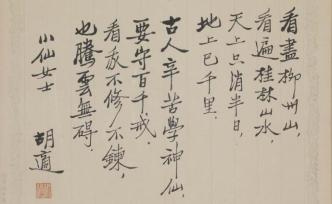 看盡柳州山，
看遍桂林山水，
天上只消半日，
地上已千里。
古人辛苦學神仙，
要守百千戒。
看我不修不鍊，
也騰雲無碍。
小仙女士
胡適